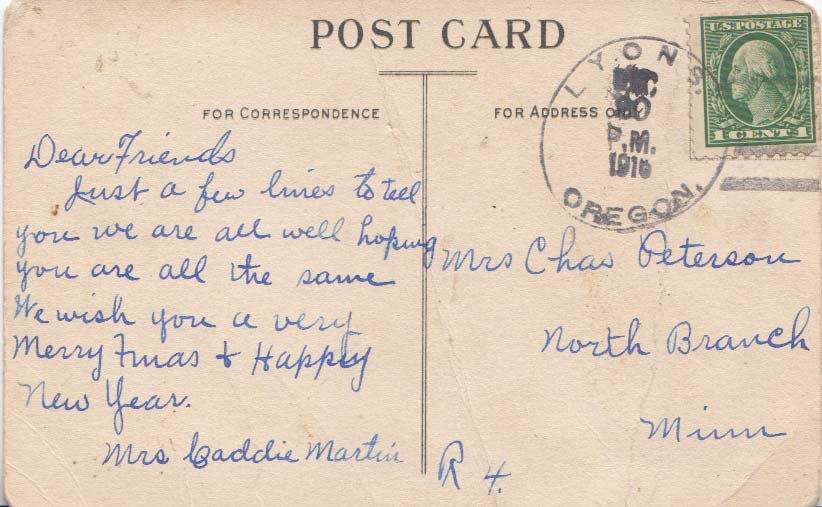 POST CARD
FOR CORRESPONDENCE
FOR ADDRESS ONLY
U.S. POSTAGE
1 CENT 1
LYONS.
P.M.
OREGON.
Dear Friends
Just a few lines to tell
you we are all well hoping
you are all the same
We wish you a very
Merry Xmas & Happy
New Year.
Mrs Caddie Martin
Mrs Chas Peterson
North Branch
Minn
R 4.